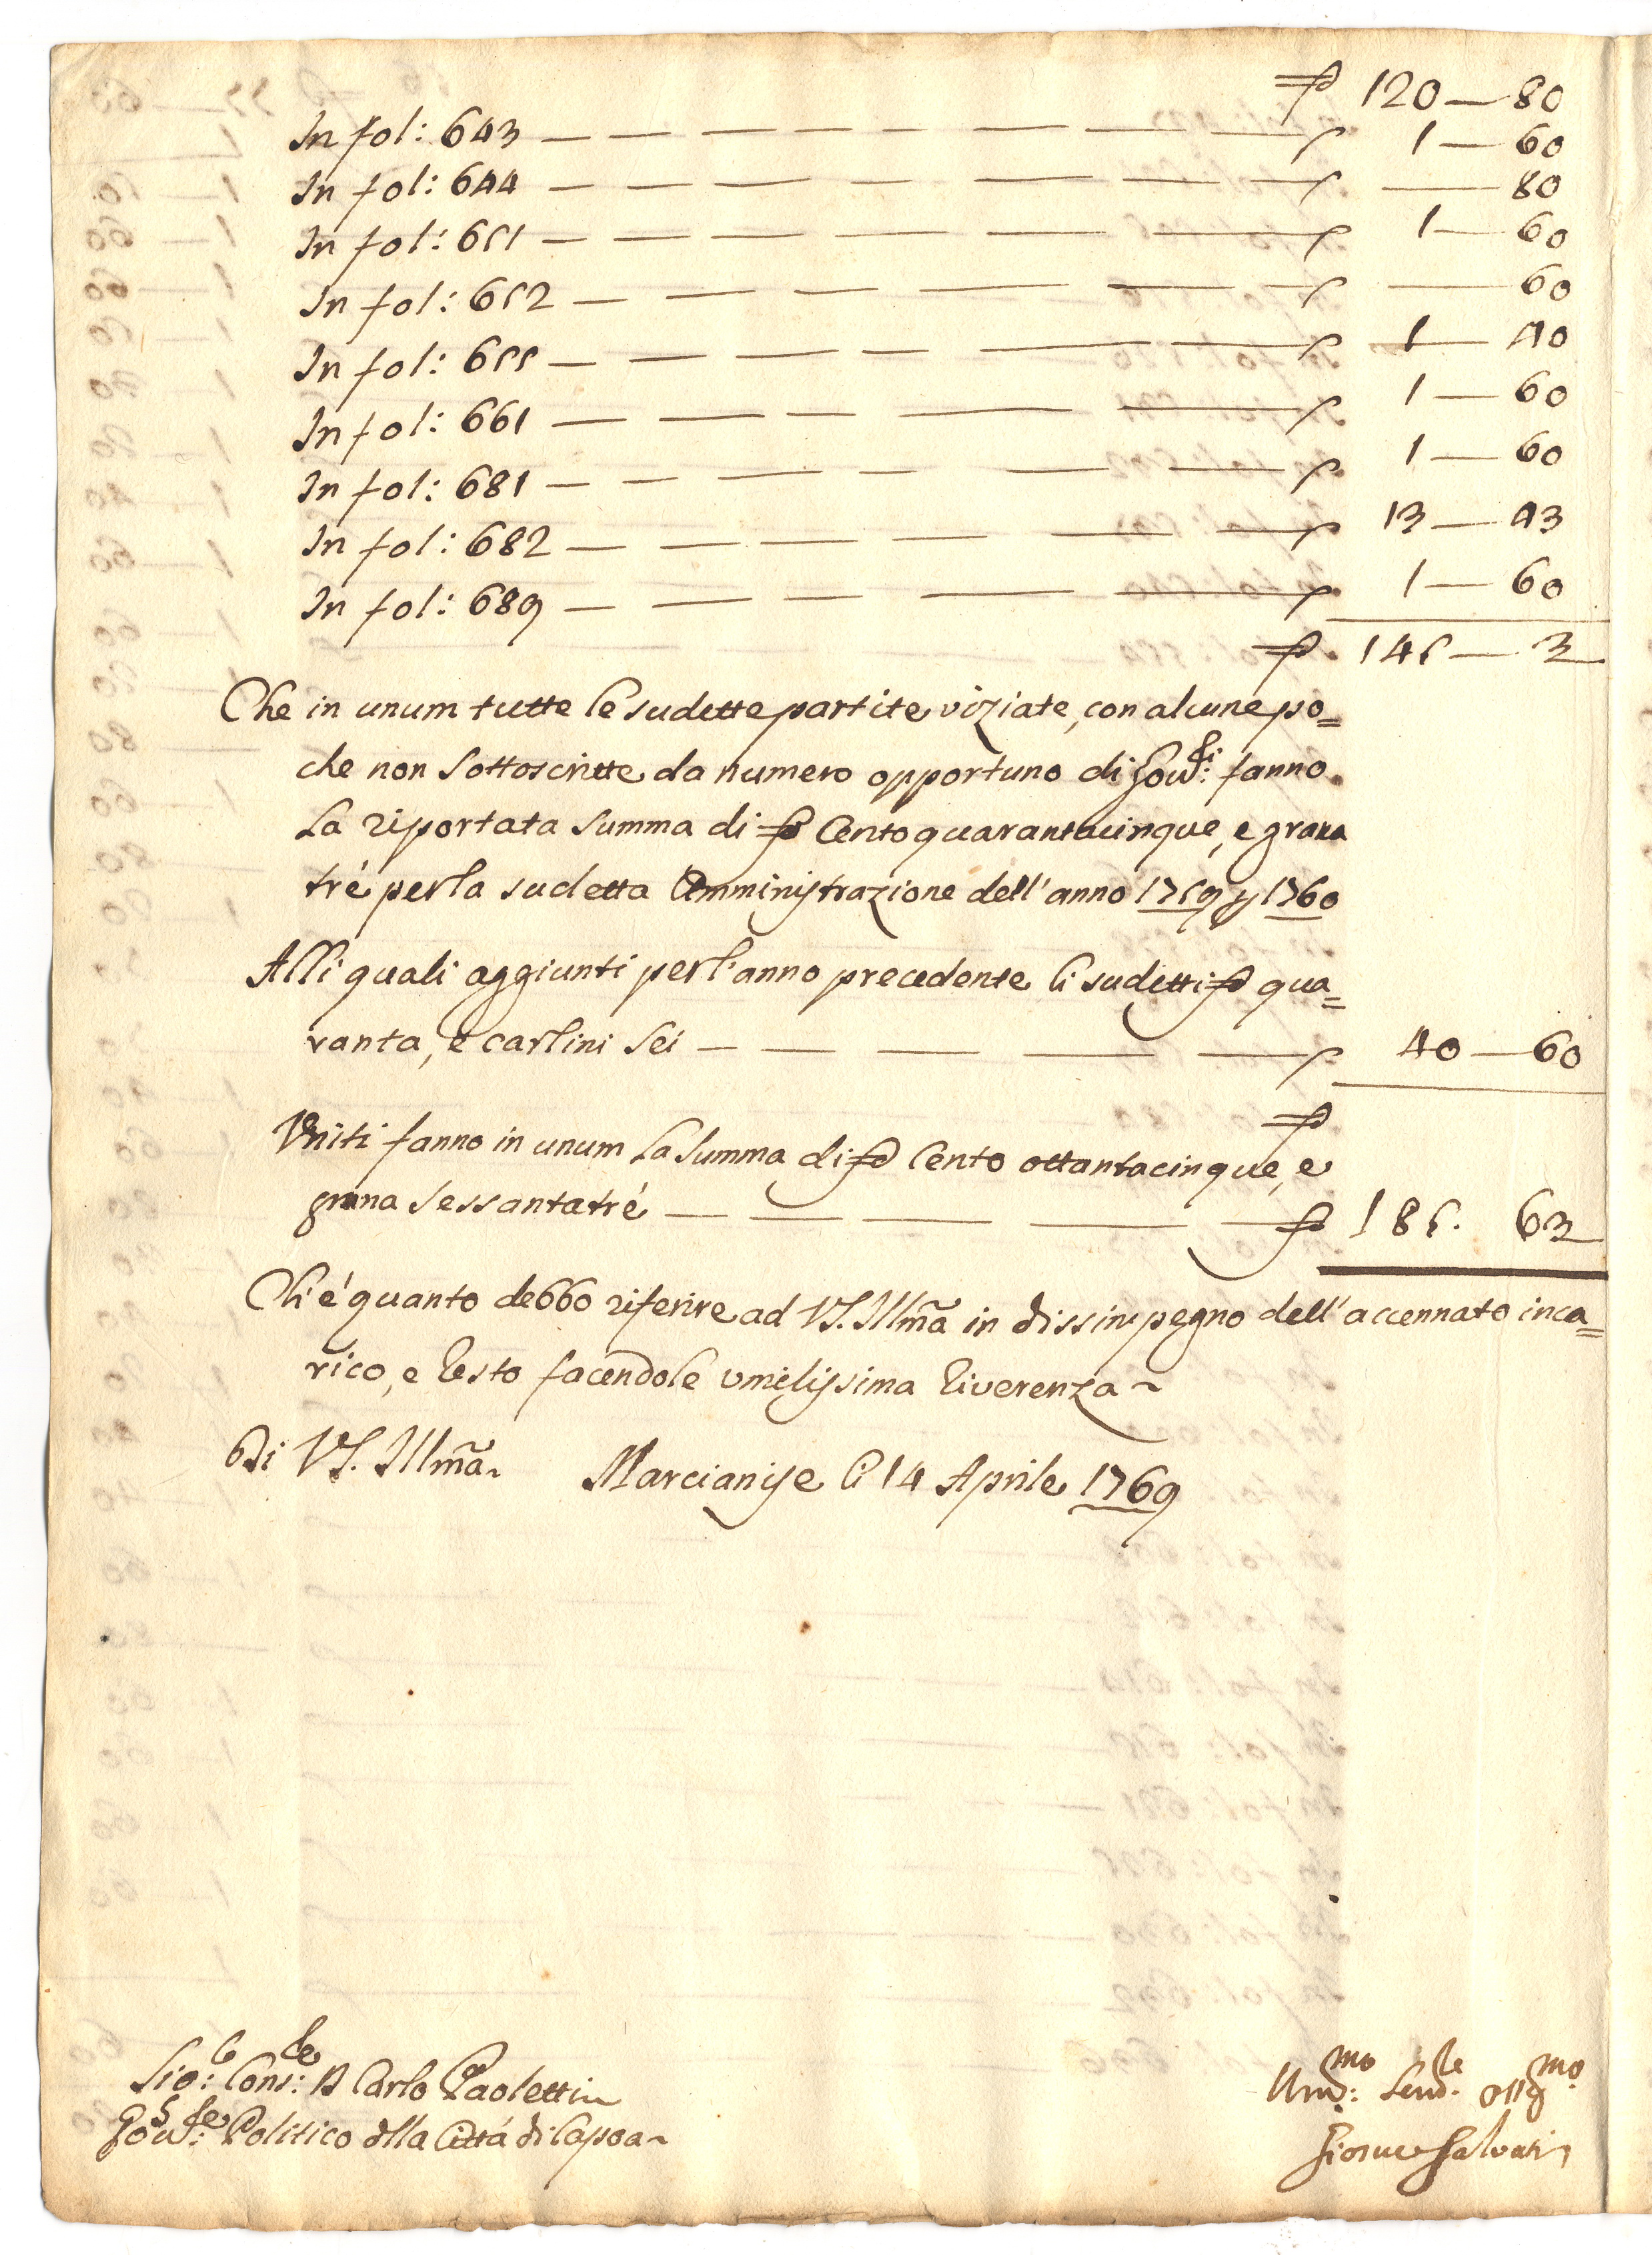 ₯ 120 — 80
In fol: 643 — — — — — — — — 1 — 60
In fol: 644 — — — — — — — — — 80
In fol: 651 — — — — — — — — 1 — 60
In fol: 652 — — — — — — — — 60
In fol: 655 — — — — — — — 1 — 40
In fol: 661 — — — — — — 1 — 60
In fol: 681 — — — — — — — 1 — 60
In fol: 682 — — — — — — — 13 — 43
In fol: 689 — — — — — — 1 — 60
₯ 145 — 3
Che in unum tutte le sudette partite viziate, con alcune po=
che non sottoscritte da numero opportuno di Gov.di: fanno
la riportata summa di ₯ Cento quarantacinque, e grana
tré per la sudetta Amministrazione dell'anno 1759 p 1760
Alli quali aggiunti per l'anno precedente li sudetti ₯ qua=
ranta, e carlini sei — — — — — 40 — 60
₯
Uniti fanno in unum la summa di ₯ Cento ottantacinque, e
grana sessantatré — — — — — ₯ 185. 63
Ch'é quanto debbo riferire ad VS. Illma in dissimpegno dell'accennato inca=
rico, e resto facendole umilissima riverenza ~
Di VS. Illma. Marcianise li 14 Aprile 1769
Sig: Cons: D Carlo Paoletti
Gov: Politico dlla Cittá di Capoa ~
Umo: Servre. oblgmo.
Giosue Salvati